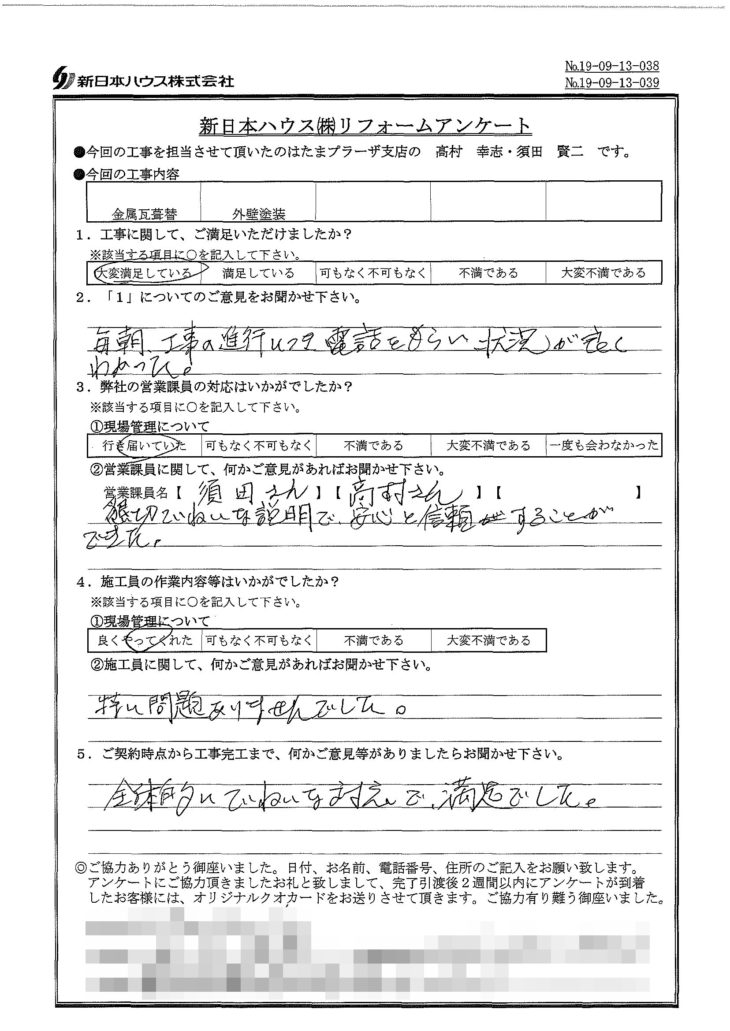 №19-09-13-038
№19-09-13-039
新日本ハウス株式会社
新日本ハウス㈱リフォームアンケート
●今回の工事を担当させて頂いたのはたまプラーザ支店の 高村 幸志・須田 賢二 です。
●今回の工事内容
金属瓦葺替 外壁塗装
1．工事に関して、ご満足いただけましたか？
※該当する項目に○を記入して下さい。
大変満足している 満足している 可もなく不可もなく 不満である 大変不満である
2．「1」についてのご意見をお聞かせ下さい。
毎朝、工事の進行につき電話をもらい、状況が良く
わかった。
3．弊社の営業課員の対応はいかがでしたか？
※該当する項目に○を記入して下さい。
①現場管理について
行き届いていた 可もなく不可もなく 不満である 大変不満である 一度も会わなかった
②営業課員に関して、何かご意見があればお聞かせ下さい。
営業課員名【 須田さん 】【 高村さん 】【 】
親切ていねいな説明で、安心と信頼がすることが
できた。
4．施工員の作業内容等はいかがでしたか？
※該当する項目に○を記入して下さい。
①現場管理について
良くやってくれた 可もなく不可もなく 不満である 大変不満である
②施工員に関して、何かご意見があればお聞かせ下さい。
特に問題ありませんでした。
5．ご契約時点から工事完工まで、何かご意見等がありましたらお聞かせ下さい。
全体的にていねいな対応で、満足でした。
◎ご協力ありがとう御座いました。日付、お名前、電話番号、住所のご記入をお願い致します。
アンケートにご協力頂きましたお礼と致しまして、完了引渡後2週間以内にアンケートが到着
したお客様には、オリジナルクオカードをお送りさせて頂きます。ご協力有り難う御座いました。